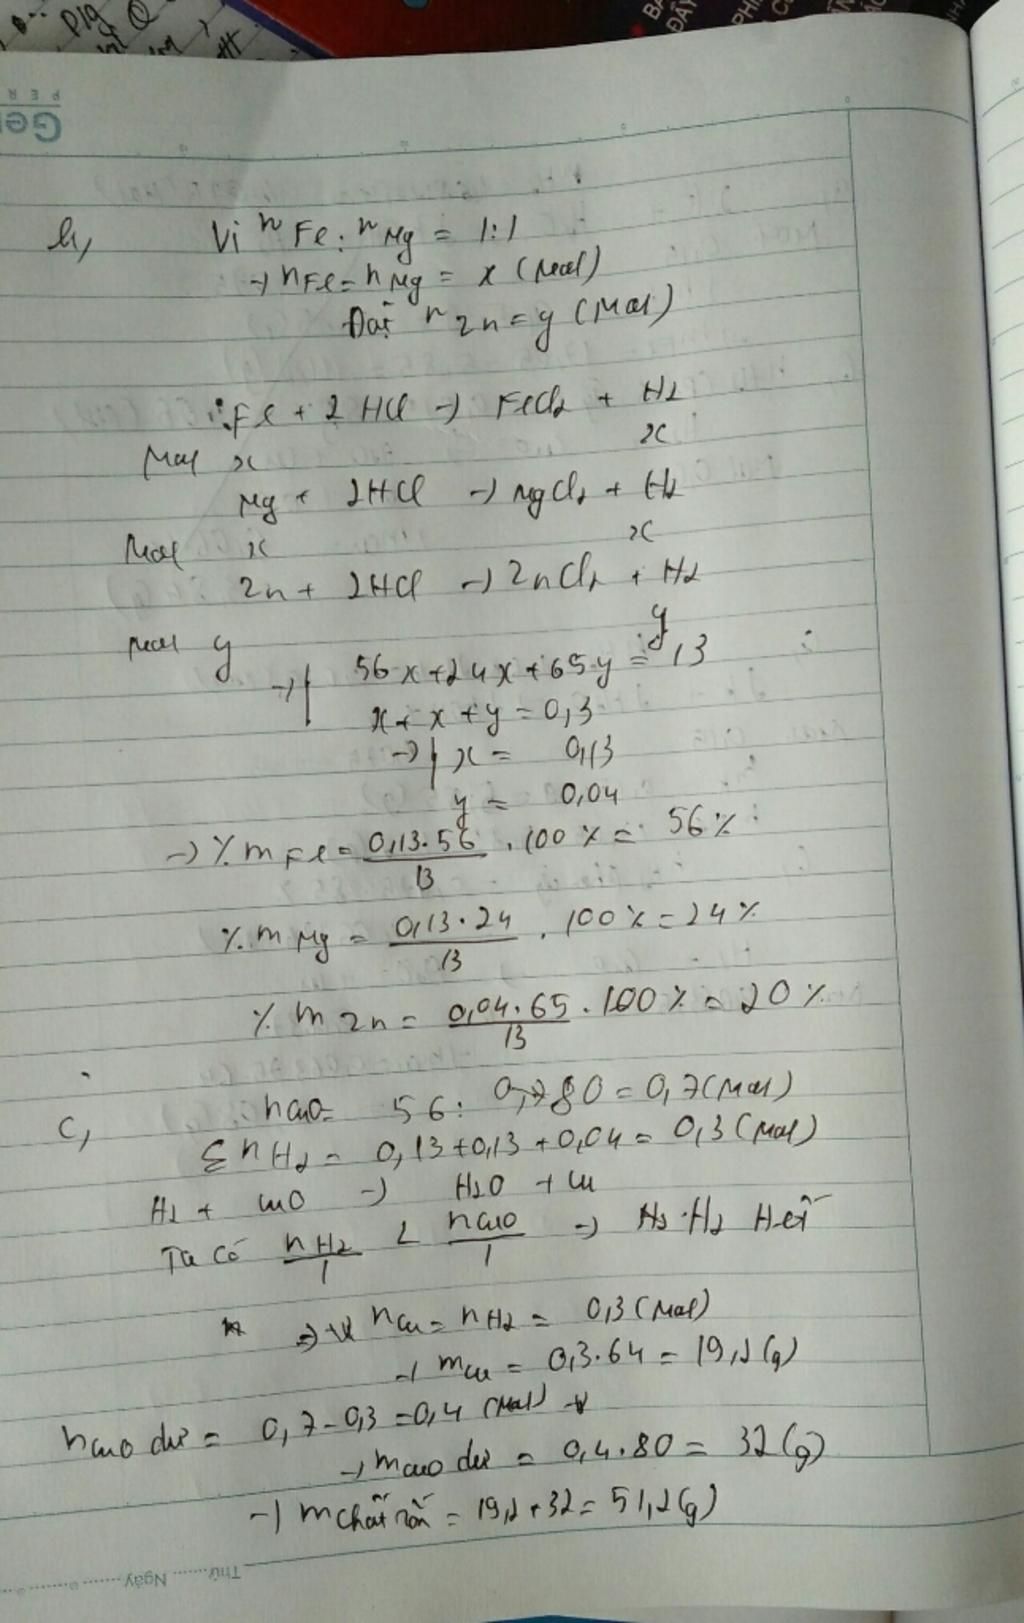 b, Vì nFe : nMg = 1:1
→ nFe = nMg = x (mol)
Đặt nZn = y (mol)
Fe + 2HCl → FeCl2 + H2
Mol x x
Mg + 2HCl → MgCl2 + H2
Mol x x
Zn + 2HCl → ZnCl2 + H2
Mol y y
→ | 56x + 24x + 65y = 13
x + x + y = 0,3
→ | x = 0,13
y = 0,04
→ %mFe = 0,13.56/13 . 100% = 56%
%mMg = 0,13.24/13 . 100% = 24%
%mZn = 0,04.65/13 . 100% = 20%
c, nCuO = 56 : 80 = 0,7 (mol)
ΣnH2 = 0,13 + 0,13 + 0,04 = 0,3 (mol)
H2 + CuO → H2O + Cu
Ta có nH2/1 < nCuO/1 → H2 Hết
→ nCu = nH2 = 0,3 (mol)
→ mCu = 0,3.64 = 19,2 (g)
nCuO dư = 0,7 - 0,3 = 0,4 (mol)
→ mCuO dư = 0,4.80 = 32 (g)
→ mchất rắn = 19,2 + 32 = 51,2 (g)
Thứ ........ Ngày